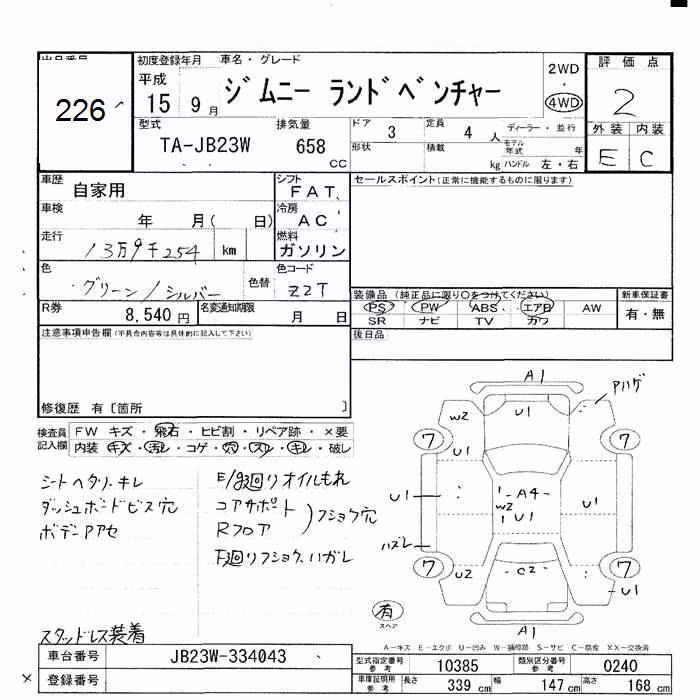 出品番号
226
初度登録年月 車名・グレード
平成 15 9月 ジムニー ランドベンチャー
2WD ・ 4WD
評価点
2
外装 内装
E C
型式 排気量 ドア 定員 ディーラー・並行
TA-JB23W 658 CC 3 4人
形状 積載 kg モデル年式 年
ハンドル 左・右
車歴 自家用 シフト FAT
車検 年 月( 日) 冷房 AC
走行 13万9千254 km 燃料 ガソリン
色 グリーン/シルバー 色替 色コード Z2T
R券 8,540円 名変通知期限 月 日
セールスポイント(正常に機能するものに限ります)
装備品 (純正品に限り○をつけてください) 新車保証書
PS PW ABS エアB AW 有・無
SR ナビ TV カワ
後日品
注意事項申告欄(不具合内容等は具体的に記入して下さい)
修復歴 有〔箇所 〕
検査員記入欄 FW キズ・飛石・ヒビ割・リペア跡・×要
内装 キズ・汚レ・コゲ・穴・スレ・キレ・破レ
シートヘタリ・キレ
ダッシュボードビス穴
ボデーPアセ
E/g廻りオイルもれ
コアサポート
Rフロア
フショク穴
下廻りフショク、ハガレ
スタッドレス装着
A1
U1 アハゲ
W2
U1
7 7
U1 A4 U1
W2
U1
ハズレ
7 7
U2 C2
U1
有
スペア
A1
A－キズ E－エクボ U－凹み W－補修跡 S－サビ C－腐食 XX－交換済
車台番号 JB23W-334043
× 登録番号
型式指定番号 参考 10385 類別区分番号 参考 0240
車庫証明用 参考 長さ 339 cm 幅 147 cm 高さ 168 cm